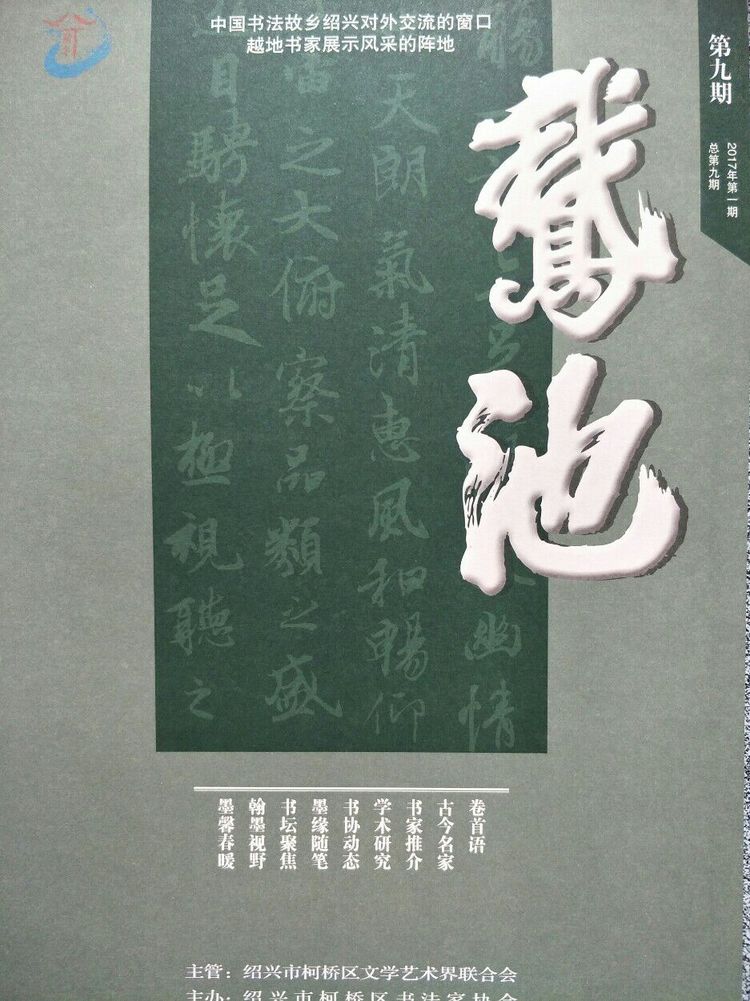 中国书法故乡绍兴对外交流的窗口
越地书家展示风采的阵地
第九期
2017年第一期
总第九期
鵞池
觴
幽情
天朗氣清惠風和暢仰
宙之大俯察品類之盛
遊目騁懷足以極視聽之
卷首语
古今名家
书家推介
学术研究
书协动态
墨缘随笔
书坛聚焦
翰墨视野
墨馨春暖
主管：绍兴市柯桥区文学艺术界联合会
主办：绍兴市柯桥区书法家协会